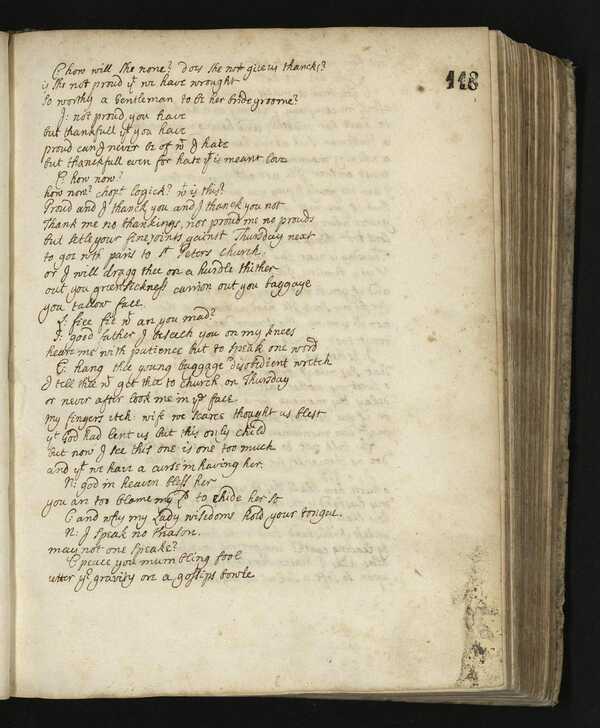 118
C: how will she none? does she not give us thancks?
is she not proud yt we have wrought
so worthy a Gentleman to be her bridegroome?
J: not proud you have
but thankfull yt you have
proud can J never be of wt J hate
but thanckfull even for hate yt is meant love
C: how now?
how now? chopt Logick? wt is this?
Proud and J thanck you and J thanck you not
Thank me no thankings, nor proud me no prouds
but settle your fine joints gainst Thursday next
to goe wth paris to St Peters church,
or J will dragg thee on a hurdle thither
out you greensickness carrion out you baggage
you tallow face.
L: fiee fie wt are you mad?
J: good father J beseech you on my knees
heare me with patience but to speak one word
C: hang thee young baggage disobedient wretch
J tell thee wt get thee to church on Thursday
or never after look me in ye face
my fingers itch: wife we scarce thought us blest
yt God had lent us but this only child
but now J see this one is one too much
and yt we have a curse in having her.
N: god in heaven bless her
you are too blame my Ld to chide her so
C: and why my Lady wisedome hold your tongue.
N: J speak no treason.
may not one speake?
C: peace you mumbling fool
utter yr gravity ore a gossips bowle